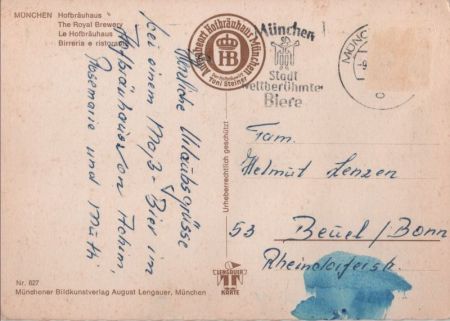 MÜNCHEN Hofbräuhaus
The Royal Brewery
Le Hofbräuhaus
Birreria e ristorante
Ausgabeort Hofbräuhaus München
HB
Toni Steiner
München
Stadt
weltberühmter
Biere
MÜNCHEN
Herzliche Urlaubsgrüsse
bei einem Maß Bier im
Hofbräuhaus von Achim
Rosemarie und Mutti
Urheberrechtlich geschützt
Fam.
Helmut Lenzen
53 Beuel/Bonn
Rheindorferstr.
Nr. 627
Münchener Bildkunstverlag August Lengauer, München
LENGAUER
KARTE